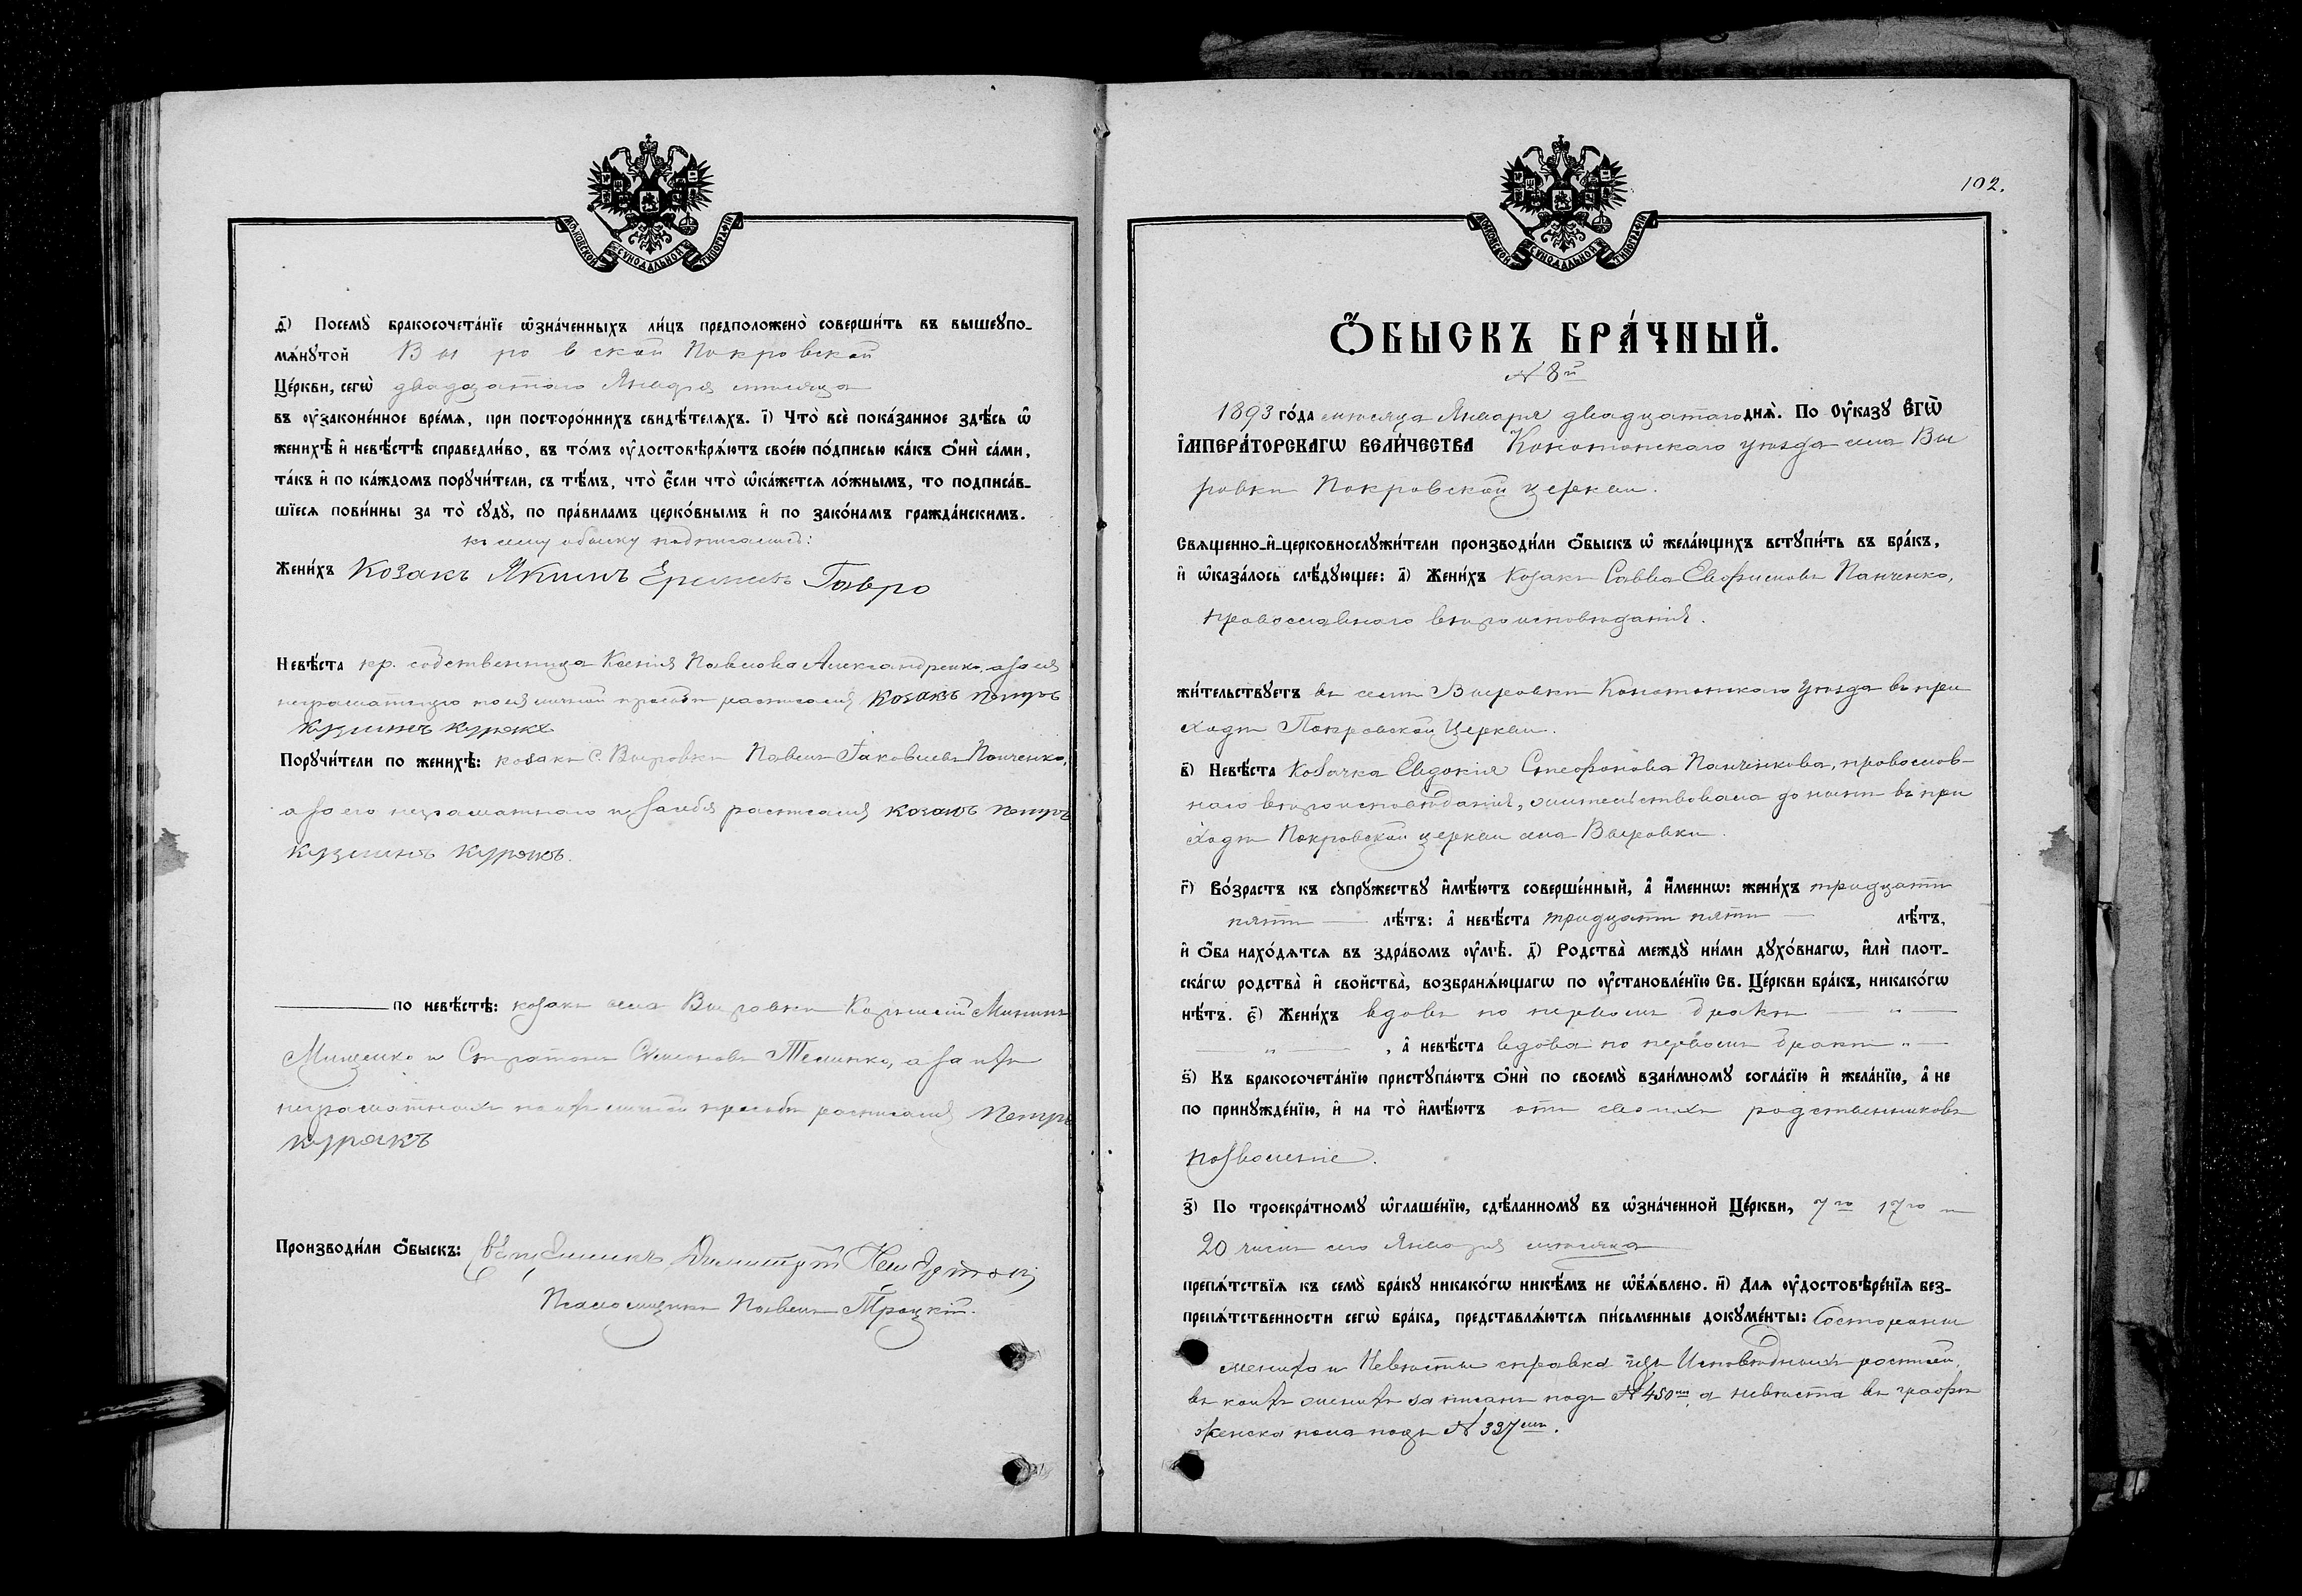 МОСКОВСКОЙ СѴНОДАЛЬНОЙ ТИПОГРАФІИ
д҃) Посемꙋ̀ бракосочета́нїе ѡ҆зна́ченныхъ ли́цъ предположено̀ соверши́ть въ вышеꙋпо-
мѧ́нꙋтой Выровской Покровской
Це́ркви, сегѡ̀ двадцатаго Января мѣсяца
въ ᲂу҆законе́нное вре́мѧ, при посторо́ннихъ свидѣ́телѧхъ. і҃) Что̀ всѐ пока́занное здѣ́сь ѡ҆
женихѣ̀ и҆ невѣ́стѣ справедли́во, въ то́мъ ᲂу҆достовѣрѧ́ютъ свое́ю по́дписью ка́къ ѻ҆нѝ са́ми,
та́къ и҆ по ка́ждомъ порꙋчи́тели, съ тѣ́мъ, что̀ є҆́сли что̀ ѡ҆ка́жетсѧ ло́жнымъ, то подписа́в-
шїесѧ пови́нны за то̀ сꙋдꙋ̀, по пра́виламъ церко́внымъ и҆ по зако́намъ гражда́нскимъ.
къ сему обыску подписались:
Жени́хъ Козакъ Якимъ Гавро
Невѣ́ста кр. собственница Ксенія Павлова Александренко, а за ея
неграмотную по ея личной просьбѣ расписался козакъ Петръ
Кузминъ Курякъ
Порꙋчи́тели по женихѣ̀: козакъ с. Выровки Павелъ Іаковлевъ Панченко,
а за его неграмотного и за себя расписался козакъ Петръ
Кузминъ Курякъ.
по невѣ́стѣ: козакъ села Выровки Мининъ
Мищенко и Стратонъ Симеоновъ а за ихъ
неграмотныхъ по ихъ личной просьбѣ расписался Петръ
Курякъ
Производи́ли ѻ҆́быскъ: Священникъ Димитрій
Псаломщикъ Павелъ Троцкій.
102.
МОСКОВСКОЙ СѴНОДАЛЬНОЙ ТИПОГРАФІИ
Ѻ҆́БЫСКЪ БРА́ЧНЫЙ.
№ 8й
1893 го́да мѣсяца Января двадцатаго днѧ̀. По Оу҆ка́зꙋ Є҆ГѠ̀
И҆МПЕРА́ТОРСКАГѠ ВЕЛИ́ЧЕСТВА Конотопскаго уѣзда села Вы
ровки Покровской церкви.
Свѧщенно-и҆-церковнослꙋжи́тели производи́ли ѻ҆́быскъ ѡ҆ жела́ющихъ встꙋпи́ть въ бра́къ,
и҆ ѡ҆каза́лось слѣ́дꙋющее: а҃) Жени́хъ Козакъ Савва Евфимовъ Панченко,
православнаго вѣроисповѣданія.
жи́тельствꙋетъ въ селѣ Выровкѣ Конотопскаго Уѣзда въ при
ходѣ Покровской Церкви.
в҃) Невѣ́ста Козачка Евдокія Стефанова Панченкова, православ-
наго вѣроисповѣданія, жительствовала до нынѣ въ при
ходѣ Покровской церкви села Выровки.
г҃) Во́зрастъ къ сꙋпрꙋ́жествꙋ и҆мѣ́ютъ соверше́нный, а҆ и҆́меннѡ: жени́хъ тридцати
пяти лѣ́тъ: а҆ невѣ́ста тридцати пяти лѣ́тъ,
и҆ ѻ҆́ба нахо́дѧтсѧ въ здра́вомъ ᲂу҆мѣ̀. д҃) Родства̀ междꙋ̀ ни́ми дꙋхо́внагѡ, и҆лѝ плот-
ска́гѡ родства̀ и҆ свойства̀, возбранѧ́ющагѡ по ᲂу҆становле́нїю Св. Це́ркви бра́къ, никако́гѡ
нѣ́тъ. є҃) Жени́хъ вдовъ по первомъ бракѣ — „ —
— „ — , а҆ невѣ́ста вдова по первомъ бракѣ „ —
ѕ҃) Къ бракосочета́нїю пристꙋпа́ютъ ѻ҆нѝ по своемꙋ̀ взаи́мномꙋ согла́сїю и҆ жела́нїю, а҆ не
по принꙋжде́нїю, и҆ на то̀ и҆мѣ́ютъ отъ своихъ родственниковъ
позволеніе.
з҃) По троекра́тномꙋ ѡ҆глаше́нїю, сдѣ́ланномꙋ въ ѡ҆зна́ченной Це́ркви, 7го 17го и
20 числъ сего Января мѣсяца
препѧ́тствїѧ къ семꙋ̀ бра́кꙋ никако́гѡ никѣ́мъ не ѡ҆б̾ѧ́влено. и҃) Длѧ ᲂу҆достовѣре́нїѧ без-
препѧ́тственности сегѡ̀ бра́ка, представлѧ́ютсѧ пи́сьменные докꙋме́нты: Состороны
жениха и Невѣсты справка изъ Исповѣдныхъ росписей,
въ коихъ женихъ записанъ подъ № 450мъ, а невѣста въ графѣ
женска пола подъ № 337мъ.